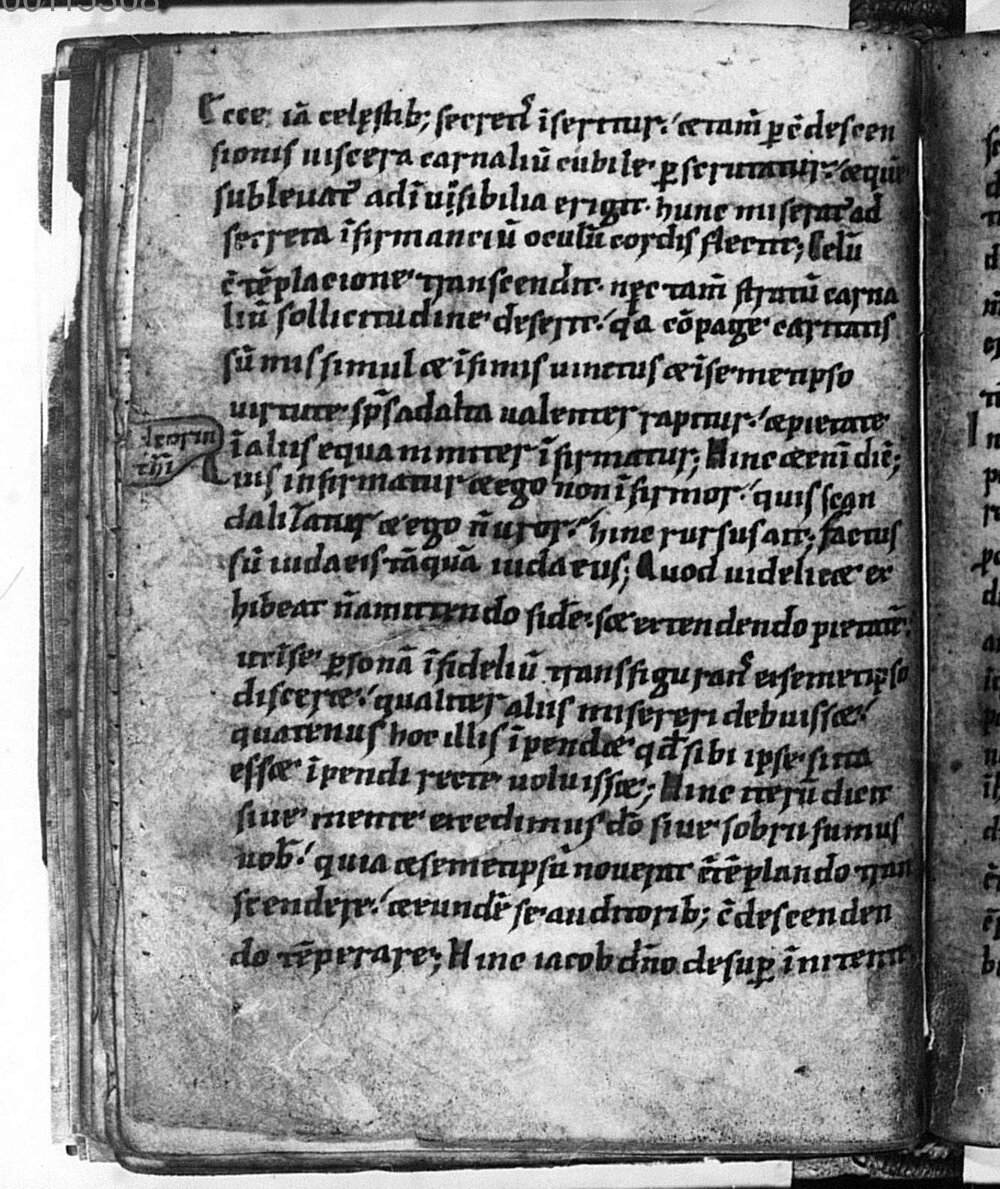 00113308
Ecce; iā celęstib; secretꝭ īseritur.' & tam̄ p c̄descen
sionis uiscera carnaliū cubile pscrutatur.' & quē
subleuat ad īuisibilia erigit. hunc miserat ad
secreta īfirmanciū oculū cordis flectit; Celū
c̄tēplacione transcendit. nec tam̄ stratū carna
liū sollicitudine deserit.' q̇a cōpage caritatis
sūmis simul & īfimis uinctus & ī semetipso
uirtute sp̄s ad alta ualenter rapitur.' & pietate
ī aliis equanimiter īfirmatur; Hinc & eni᷑ dic̄;
Quis infirmatur & ego non īfirmor.' quis scan
dalizatur & ego n̄ uror.' hinc rursus ait; factus
sū iudaeis tāquā iudaeus; Quod uidelic& ex
hibebat n̄ amittendo fidē. s& extendendo pietatē.
ut ī se psonā īfidelū transfigurans ex semetipso
discer&.' qualiter aliis misereri debuiss&.'
quatenus hoc illis īpend& qđ sibi ipse si ita
ess& īpendi recte uoluiss&; Hinc iterū dicit
siue mente excedimus dō siue sobrii sumus
uob̄.' quia & semetipsū nouerat c̄tēplando tran
scendere.' & eundē se auditorib; c̄descenden
do tēperare; Hinc iacob dn̄o desup īnitente